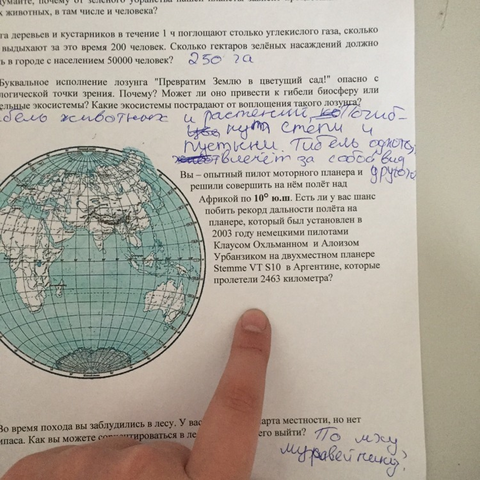 думайте, почему от зелёного убранства нашей планеты
х животных, в там числе и человека?
га деревьев и кустарников в течение 1 ч поглощают столько углекислого газа, сколько
выдыхают за это время 200 человек. Сколько гектаров зелёных насаждений должно
ть в городе с населением 50000 человек? 250 га
Буквальное исполнение лозунга "Превратим Землю в цветущий сад!" опасно с
логической точки зрения. Почему? Может ли оно привести к гибели биосферу или
ельные экосистемы? Какие экосистемы пострадают от воплощения такого лозунга?
бель животных и растений Погиб-
нут степи и
пустыни. Гибель одного
влечёт за собой вид
другого
Вы – опытный пилот моторного планера и
решили совершить на нём полёт над
Африкой по 10° ю.ш. Есть ли у вас шанс
побить рекорд дальности полёта на
планере, который был установлен в
2003 году немецкими пилотами
Клаусом Охльманном и Алоизом
Урбанзиком на двухместном планере
Stemme VT S10 в Аргентине, которые
пролетели 2463 километра?
Во время похода вы заблудились в лесу. У вас карта местности, но нет
паса. Как вы можете сориентироваться в ле его выйти? По мху
муравейнику?